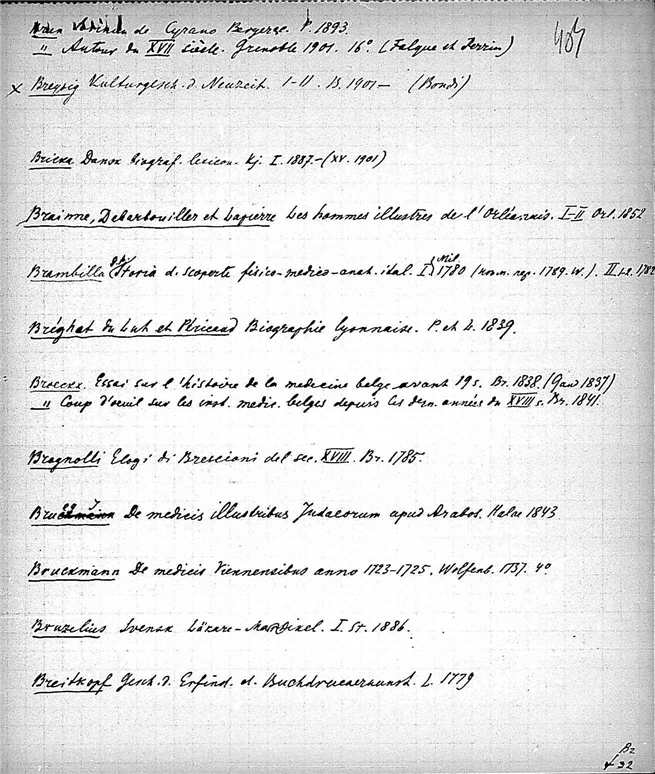 de Cyrano Bergerac. P. 1893.
" Autour du XVII siècle. Grenoble 1901. 16° (Falque et Perrin)
404
x Breysig Kulturgesch. d. Neuzeit. I-II. B. 1901 — (Bondi)
Bricka Dansk biograf. lexicon. Kj. I. 1887.-(XV. 1901)
Brainne, Debarbouiller et Lapierre Les hommes illustres de l'Orléanais. I-II Orl. 1852
Brambilla Storia d. scoperte fisico-medico-anat. ital. I Mil. 1780 II 1782
Bréghot du Lut et Péricaud Biographie Lyonnaise. P. et L. 1839.
Broeckx. Essai sur l'histoire de la medecine belge avant 19 s. Br. 1838. (Gand 1837)
" Coup d'oeuil sur les inst. medic. belges depuis les dern. années du XVIII s. Br. 1841.
Brognolli Elogi di Bresciani del sec. XVIII. Br. 1785.
De medicis illustribus Judaeorum apud Arabos. Halae 1843
Bruckmann De medicis Viennensibus anno 1723-1725. Wolfenb. 1737. 4°
Bruzelius Svensk Läkare-Matrikel. I. St. 1886.
Breitkopf Gesch. d. Erfind. d. Buchdruckerkunst. L. 1779
Bz
32